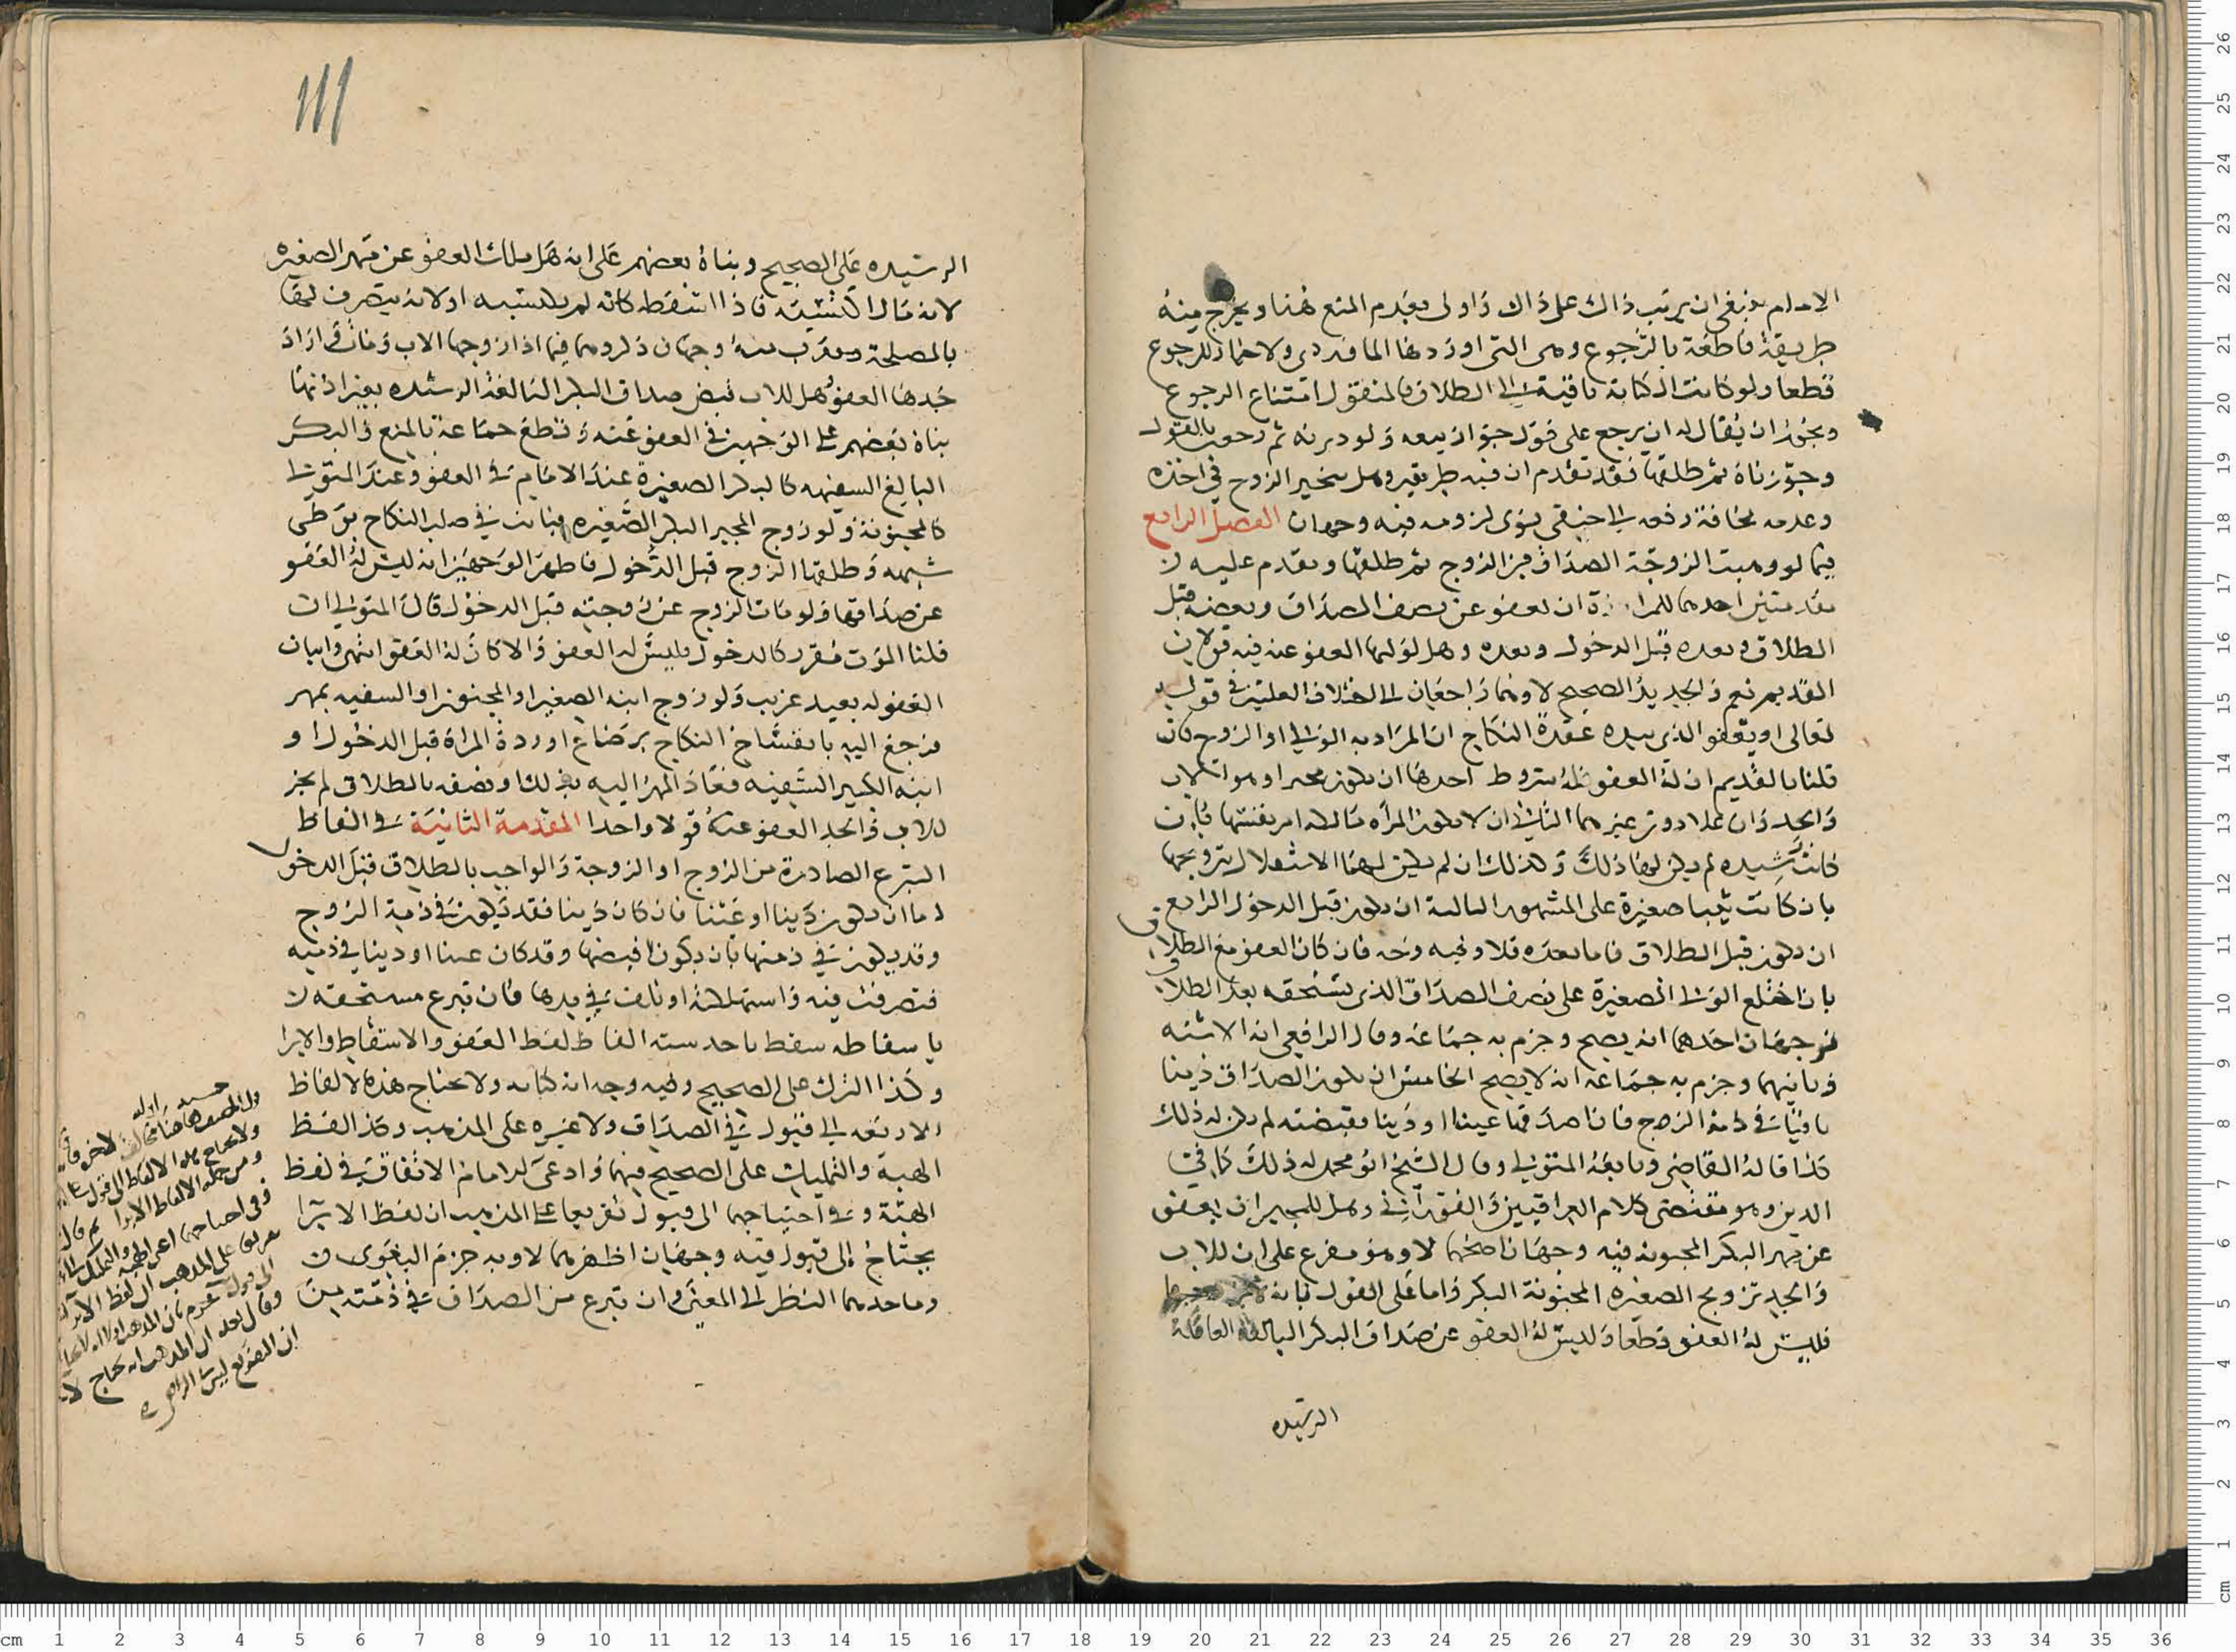 الامام ينبغي ان يرتب ذاك على ذاك واولى بعدم المنع هنا ويخرج منه
طريقة قاطعة بالرجوع وهي التي اوردها الماوردي ولا خيار للرجوع
قطعا ولو كانت الكتابة باقية الى الطلاق فالمنقول امتناع الرجوع
ويجوز ان يقال له ان يرجع على قول جواز بيعه ولو دبرته ثم رجعت بالقول
وجوزناه ثم طلقها فقد تقدم ان فيه طريقين وهل يتخير الزوج في اخذه
وعدمه مخافة رفعه الى حنفي يرى لزومه فيه وجهان الفصل الرابع
فيما لو وهبت الزوجة الصداق من الزوج ثم طلقها ويقدم عليه
مقدمتين احدهما للمراة ان تعفو عن نصف الصداق وبعضه قبل
الطلاق وبعده قبل الدخول وبعده وهل لوليها العفو عنه فيه قولان
القديم نعم والجديد الصحيح لا وهما راجعان الى اختلاف العلماء في قوله
تعالى او يعفو الذي بيده عقدة النكاح ان المراد به الولي او الزوج فان
قلنا بالقديم ان له العفو فله شروط احدها ان يكون مجبرا وهو الاب
والجد وان علا دون غيرهما الثاني ان لا تكون المرأة مالكة امر نفسها فان
كانت رشيده لم يكن لهما ذلك وكذلك ان لم يكن لهما الاستقلال بتزويجها
بان كانت ثيبا صغيرة على المشهور الثالث ان يكون قبل الدخول الرابع
ان يكون قبل الطلاق فاما بعده فلا وفيه وجه فان كان العفو مع الطلاق
بان اختلع الولي الصغيرة على نصف الصداق الذي تستحقه بعد الطلاق
فوجهان احدهما انه يصح وجزم به جماعة وقال الرافعي انه الاشبه
وثانيهما وجزم به جماعة انه لا يصح الخامس ان يكون الصداق دينا
باقيا في ذمة الزوج فان اصدقها عينا او دينا وقبضته لم يكن له ذلك
كذا قاله القاضي وتابعه المتولي وقال الشيخ ابو محمد له ذلك كما في
الدين وهو مقتضى كلام العراقيين والفوراني وهل للمجبر ان يعفو
عن مهر البكر المجنونة فيه وجهان اصحهما لا وهو مفرع على ان للاب
والجد تزويج الصغيره المجنونة البكر واما على القول بانه
فليس له العفو قطعا وليس له العفو عن صداق البكر البالغة العاقلة
الرشيده
١١١
الرشيده على الصحيح وبناه بعضهم على انه هل يملك العفو عن مهر الصغيره
لانه مال اكتسبته فاذا اسقطه كانه لم يكتسبه او لانه يتصرف لها
بالمصلحة ويقرب منه وجهان ذكروهما فيما اذا زوجها الاب ومات فاراد
جدها العفو وهل للاب قبض صداق البكر البالغة الرشيده بغير اذنها
بناه بعضهم على الوجهين في العفو عنه وقطع جماعة بالمنع والبكر
البالغ السفيهه كالبكر الصغيرة عند الامام في العفو وعند المتولي
كالمجنونة ولو زوج المجبر البكر الصغيره فبانت في صلب النكاح بوطي
شبهه وطلقها الزوج قبل الدخول فاظهر الوجهين انه ليس له العفو
عن صداقها ولو مات الزوج عن زوجته قبل الدخول قال المتولي ان
قلنا الموت مقرر كالدخول فليس له العفو والا كان له العفو انتهى واثبات
العفو له بعيد غريب ولو زوج ابنه الصغير او المجنون او السفيه بمهر
فرجع اليه بانفساخ النكاح برضاع او ردة المراة قبل الدخول او
ابنه الكبير السفيه فعاد المهر اليه بذلك او نصفه بالطلاق لم يجز
للاب والجد العفو عنه قولا واحدا المقدمة الثانية في الفاظ
التبرع الصادرة من الزوج او الزوجة والواجب بالطلاق قبل الدخول
اما ان يكون دينا او عينا فان كان دينا فقد يكون في ذمة الزوج
وقد يكون في ذمتها بان يكون اقبضها وقد كان عينا او دينا في ذمته
فتصرفت فيه واستهلكته او تلف في يدها فان تبرع مستحقه
باسقاطه سقط باحد ستة الفاظ لفظ العفو والاسقاط والابرا
وكذا الترك على الصحيح وفيه وجه انه كناية ولا تحتاج هذه الالفاظ
الاربعه الى قبول في الصداق ولا غيره على المذهب وكذا لفظ
الهبة والتمليك على الصحيح فيهما وادعى الامام الاتفاق في لفظ
الهبة وفي احتياجهما الى قبول تفريعا على المذهب ان لفظ الابرا
يحتاج الى قبول فيه وجهان اظهرهما لا وبه جزم البغوي
وماخذهما النظر الى المعنى وان تبرع من الصداق في ذمته من
ولا يحتاج هذه الالفاظ الى قبول
ومن جملة الالفاظ الابرا ثم قال
وفي احتياجهما اعني الهبة والتمليك
تفريعا على المذهب ان لفظ الابرا
وقال بعد ان المذهب انه يحتاج